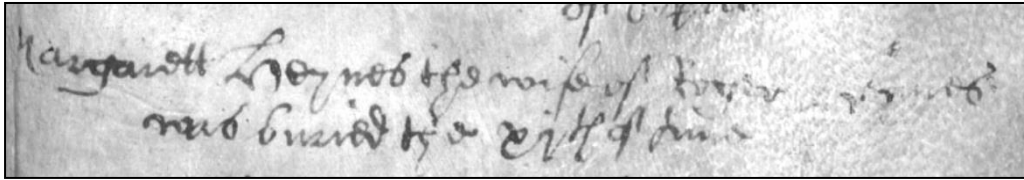 Margarett Heynes the wife of Roger Heynes
was buried the xjth of June